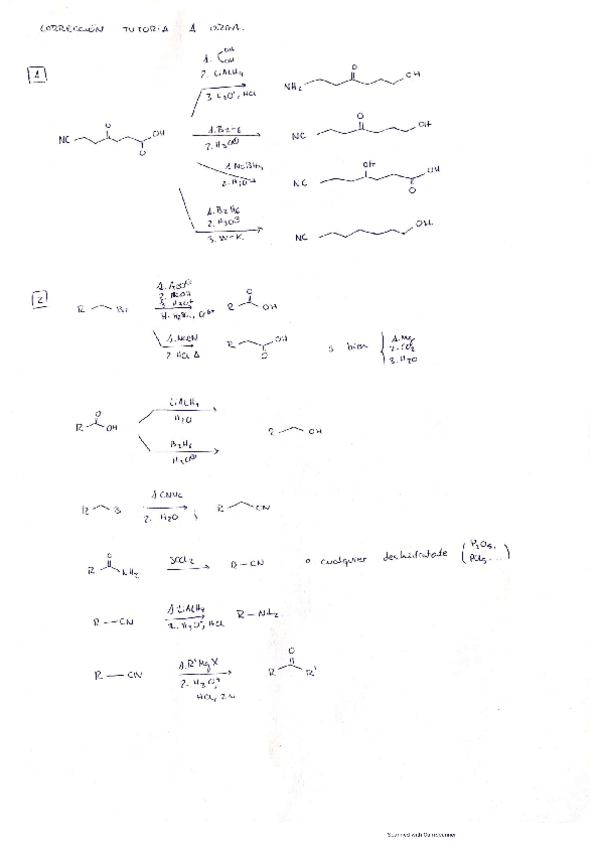 CORRECCIÓN TUTORIA 1 ORGA.
1
1. OH OH
2. LiAlH4
3. H3O+, HCl
NH2 O OH
NC O O OH
1. B2H6
2. H3O⊕
NC O OH
1. NaBH4
2. H2O
NC OH O OH
1. B2H6
2. H3O⊕
3. W-K.
NC OH
2
R Br
2. KOH
3. H3O+
R O OH
1. NaCN
2. HCl Δ
R O OH
o bien
1. Mg
2. CO2
3. H2O
R O OH
LiAlH4
H2O
R OH
B2H6
H3O⊕
R
1. CNNa
2. H2O
R CN
R O NH2
SOCl2
R-CN
o cualquier deshidratante (P2O5, PCl5...)
R-CN
1. LiAlH4
2. H3O+, HCl
R-NH2
R-CN
1. R'MgX
2. H3O+
R O R'
Scanned with CamScanner